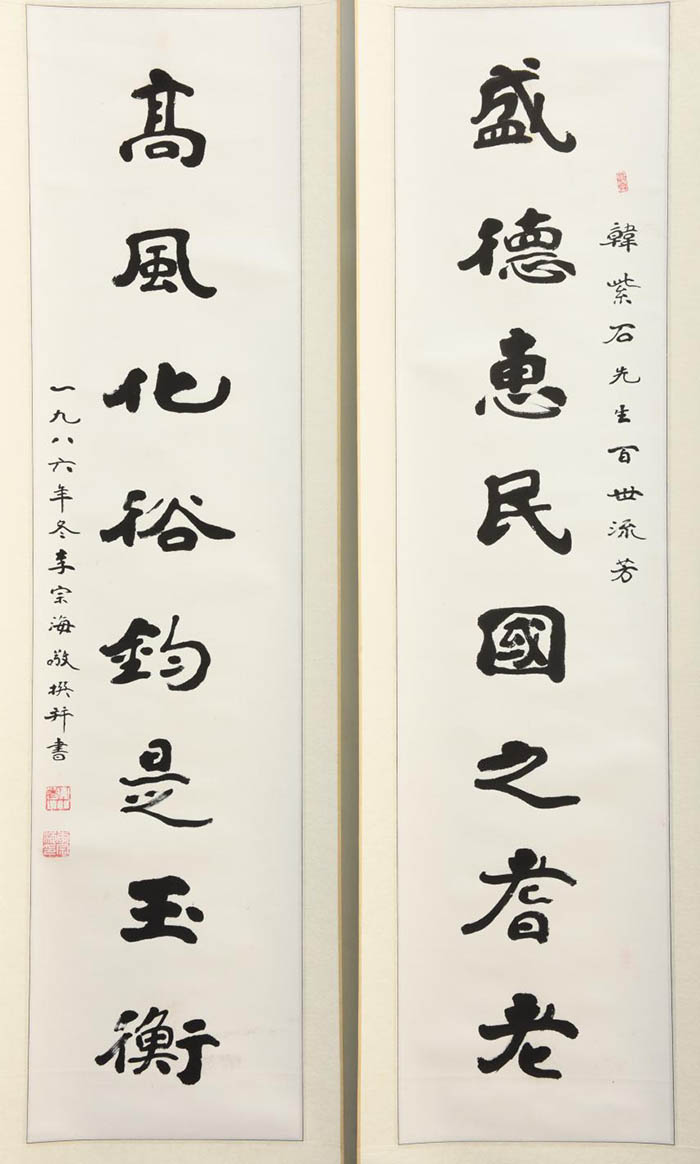 韓紫石先生百世流芳
盛德惠民國之耆老
髙風化裕鈞是玉衡
一九八六年冬李宗海敬撰并書